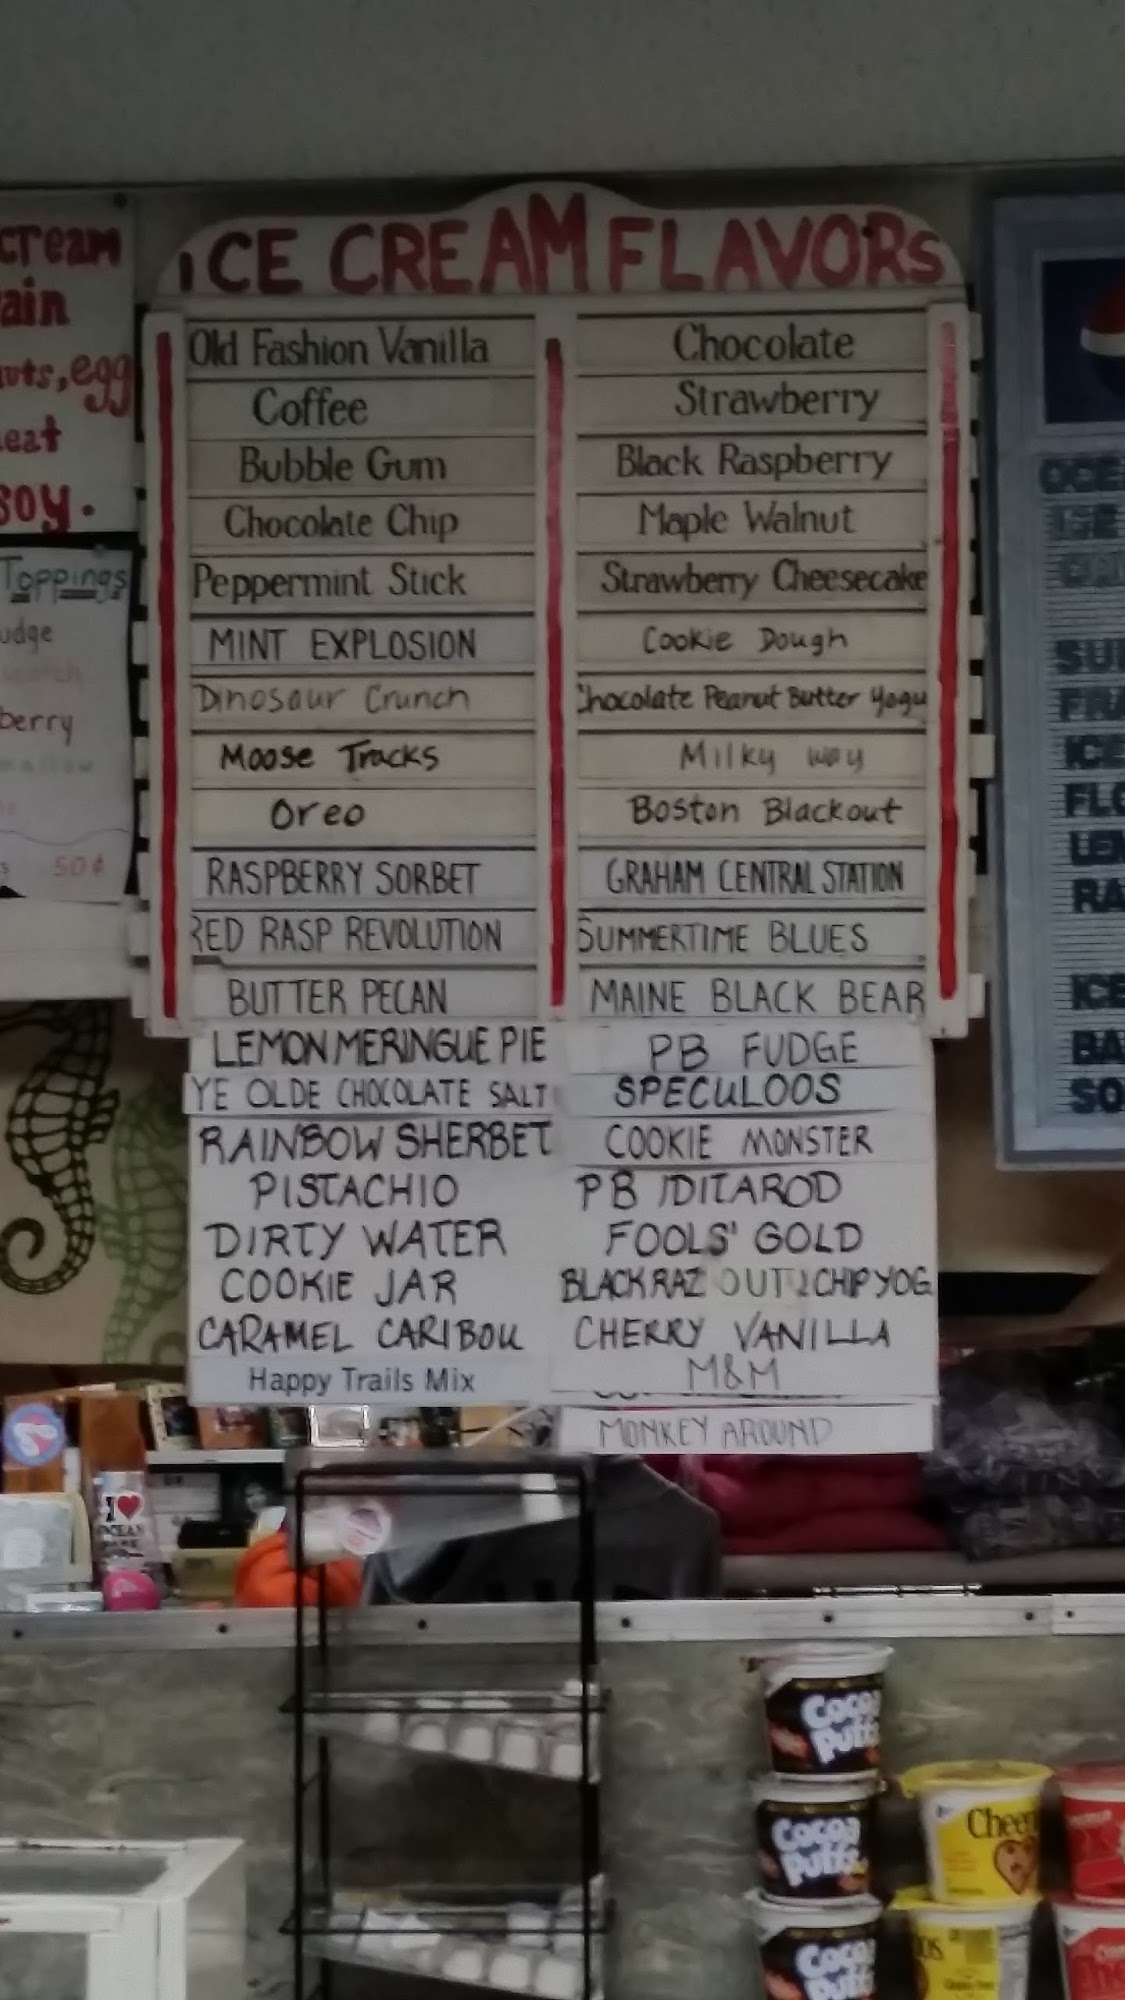 cream
ain
nuts, egg
eat
soy.
Toppings
udge
berry
50¢
ICE CREAM FLAVORS
Old Fashion Vanilla
Coffee
Bubble Gum
Chocolate Chip
Peppermint Stick
MINT EXPLOSION
Dinosaur Crunch
Moose Tracks
Oreo
RASPBERRY SORBET
RED RASP REVOLUTION
BUTTER PECAN
LEMON MERINGUE PIE
YE OLDE CHOCOLATE SALT
RAINBOW SHERBET
PISTACHIO
DIRTY WATER
COOKIE JAR
CARAMEL CARIBOU
Happy Trails Mix
Chocolate
Strawberry
Black Raspberry
Maple Walnut
Strawberry Cheesecake
Cookie Dough
Chocolate Peanut Butter Yogu
Milky way
Boston Blackout
GRAHAM CENTRAL STATION
SUMMERTIME BLUES
MAINE BLACK BEAR
PB FUDGE
SPECULOOS
COOKIE MONSTER
PB IDITAROD
FOOLS' GOLD
BLACK RAZ OUT CHIP YOG
CHERRY VANILLA
M&M
MONKEY AROUND
OCE
ICE
SU
FRA
ICE
FLO
LEM
RA
ICE
BA
SO
I ❤
OCEAN
Cocoa
Puffs
Cocoa
Puffs
Cocoa
Puffs
Cheer